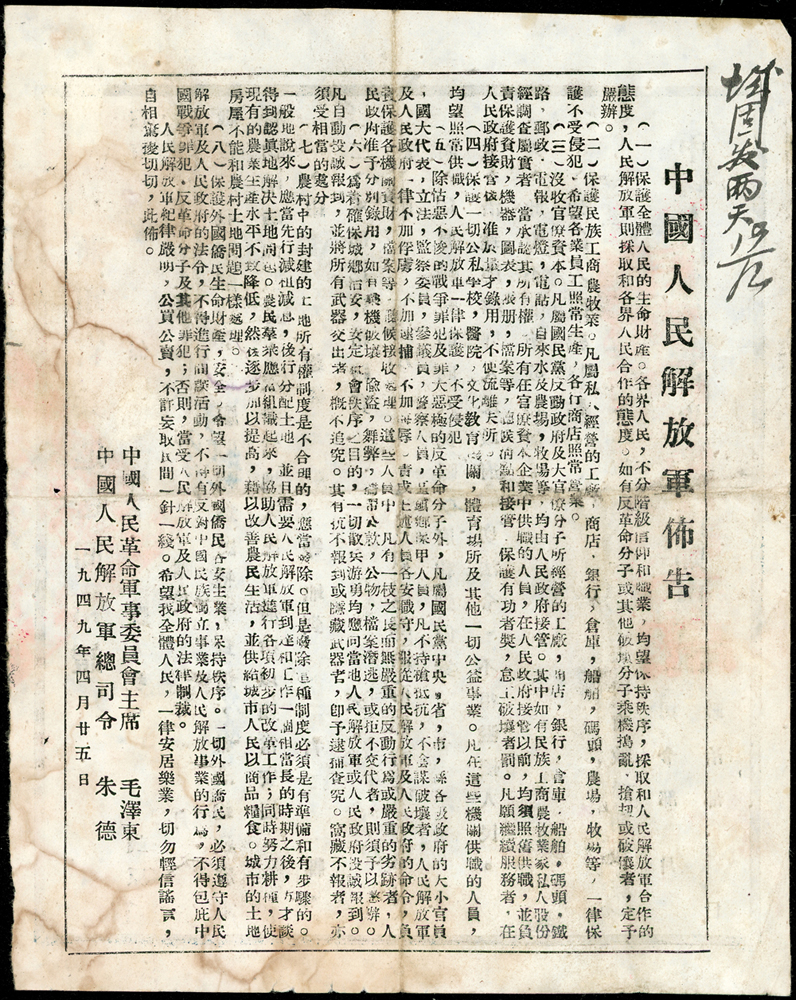 城固发两天
中國人民解放軍佈告
（一）保護全體人民的生命財產。各界人民，不分階級信仰和職業，均望保持秩序，採取和人民解放軍合作的
態度，人民解放軍則採取和各界人民合作的態度。如有反革命分子或其他破壞分子乘機搗亂、搶刼或破壞者，定予
嚴辦。
（二）保護民族工商農牧業。凡屬私人經營的工廠，商店，銀行，倉庫，船舶，碼頭，農場，牧場等，一律保
護不受侵犯。希望各業員工照常生產，各行商店照常營業。
（三）沒收官僚資本。凡屬國民黨反動政府及大官僚分子所經營的工廠，商店，銀行，倉庫，船舶，碼頭，鐵
路，郵政，電報，電燈，電話，自來水及農場，牧場等，均由人民政府接管。其中如有民族工商農牧業家私人股份
經調查屬實者，當承認其所有權。所有在官僚資本企業中供職的人員，在人民政府接管以前，均須照舊供職，並負
責保護資財，機器，圖表，賬册，檔案等，聽候清點和接管。保護有功者獎，怠工破壞者罰。凡願繼續服務者，在
人民政府接管後，准於量才錄用，不使流離失所。
（四）保護一切公私學校，醫院，文化教育機關，體育場所及其他一切公益事業。凡在這些機關供職的人員，
均望照常供職，人民解放軍一律保護，不受侵犯。
（五）除怙惡不悛的戰爭罪犯及罪大惡極的反革命分子外，凡屬國民黨中央，省，市，縣各級政府的大小官員
，國大代表，立法，監察委員，參議員，警察人員，區鎮鄉保甲人員，凡不持槍抵抗，不陰謀破壞者，人民解放軍
及人民政府一律不加俘虜，不加逮捕，不加侮辱。責成上述人員各安職守，服從人民解放軍及人民政府的命令，負
責保護各機關資財，檔案等，聽候接收處理。這些人員中，凡有一枝之長而無嚴重的反動行爲或嚴重的劣跡者，人
民政府准予分別錄用，如有乘機破壞，偷盜，舞弊，攜帶公款，公物，檔案潛逃，或拒不交代者，則須予以懲辦。
（六）爲着確保城鄉治安，安定社會秩序之目的，一切散兵游勇均應向當地人民解放軍或人民政府投誠報到。
凡自動投誠報到，並將所有武器交出者，概不追究。其有抗不報到或隱藏武器者，卽予逮捕查究。窩藏不報者，亦
須受相當的處分。
（七）農村中的封建的土地所有權制度是不合理的，應當廢除。但是廢除這種制度必須是有準備和有步驟的。
一般地說來，應當先行減租減息，後行分配土地，並且需要人民解放軍到達和工作一個相當長的時期之後，方才談
得到認眞地解決土地問題。農民羣衆應當組織起來，協助人民解放軍進行各項初步的改革工作；同時努力耕種，使
現有的農業生產水平不致降低，然後逐步加以提高，藉以改善農民生活，並供給城市人民以商品糧食。城市的土地
房屋不能和農村土地問題一樣處理。
（八）保護外國僑民生命財產，安全。希望一切外國僑民各安生業，保持秩序。一切外國僑民，必須遵守人民
解放軍及人民政府的法令，不得進行間諜活動，不得有反對中國民族獨立事業及人民解放事業的行爲，不得包庇中
國戰爭罪犯，反革命分子及其他罪犯；否則，當受人民解放軍及人民政府的法律制裁。
人民解放軍紀律嚴明，公買公賣，不許妄取民間一針一綫。希望我全體人民，一律安居樂業，切勿輕信謠言，
自相驚擾切切，此佈。
中國人民革命軍事委員會主席 毛澤東
中國人民解放軍總司令 朱德
一九四九年四月廿五日